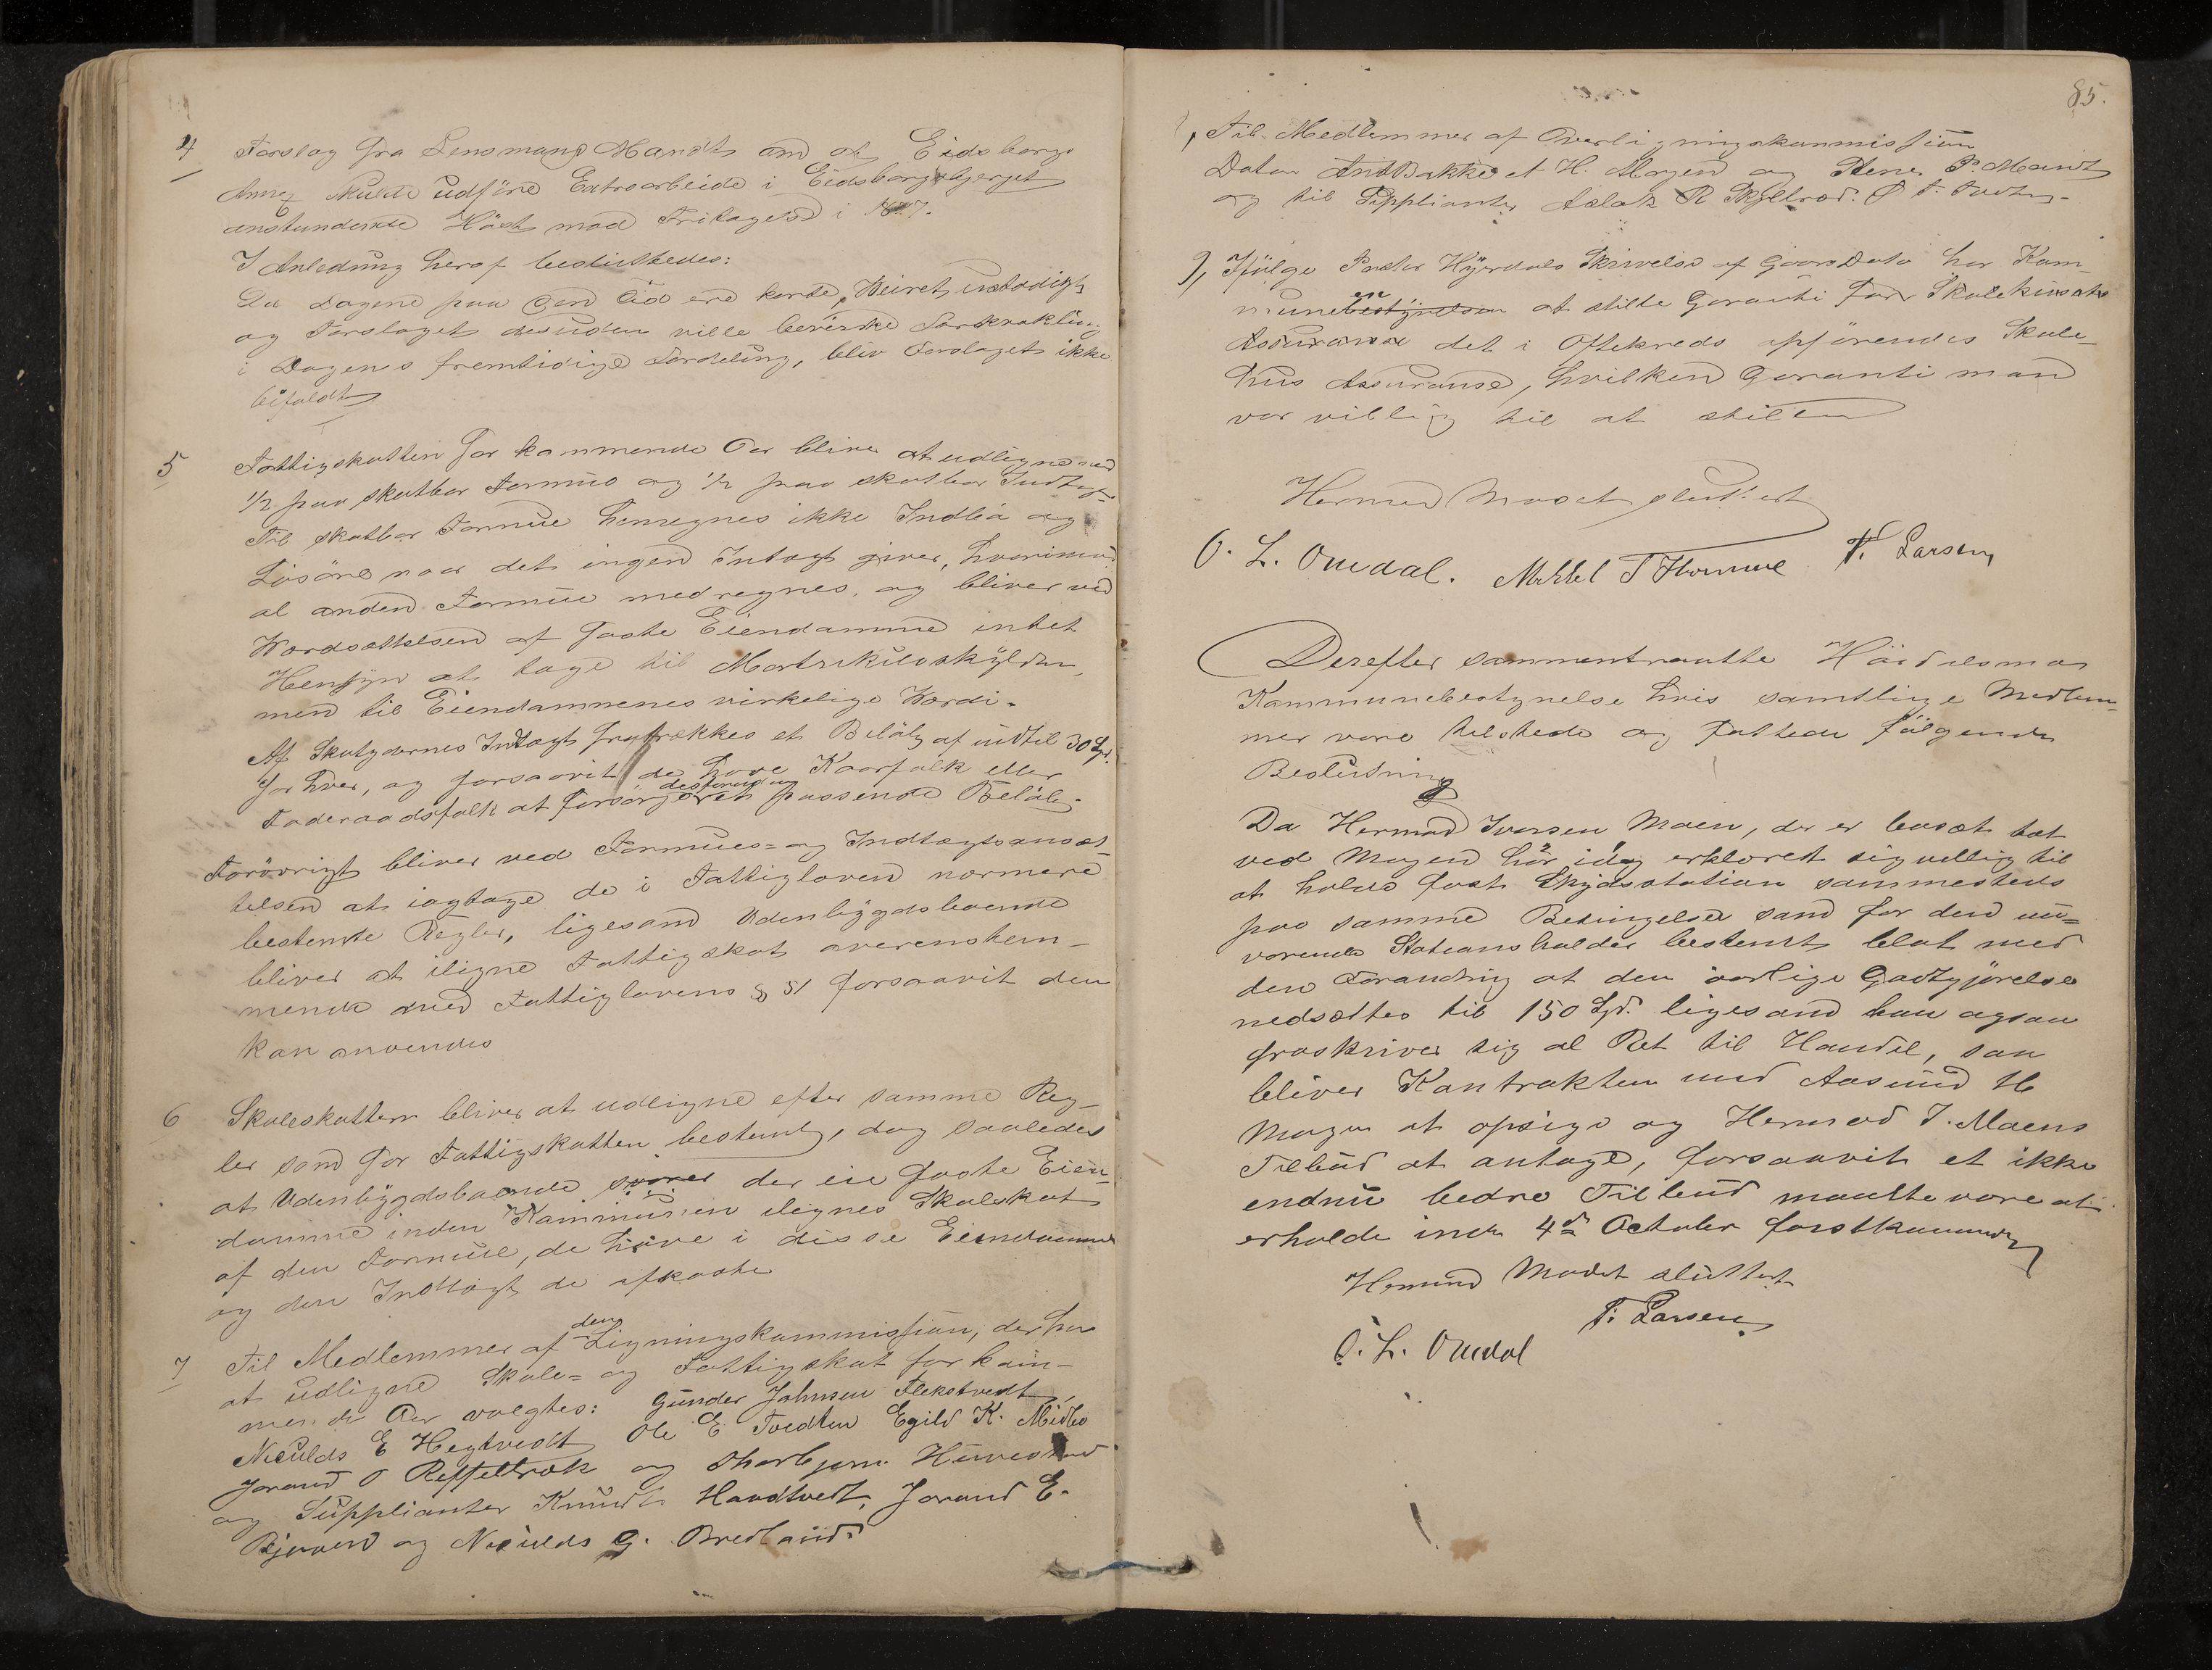 4 Forslag fra Lensmand Mandt om at Eidsborgs
Annex skulde udføre Extraarbeide i Eidsborgsbjerget
anstundende Høst mod Fritagelse i
I Anledning heraf besluttedes:
Da Dagene paa den Tid ere korte, Veiret ustadigt
og Forslaget desuden ville bevirke Forkvakling
i Dagenes fremtidige Fordeling, blev Forslaget ikke
bifaldt
5 Fattigskatten for kommende Aar bliver at udligne med
1/2 paa skatbar Formue og 1/2 paa skatbar Indtægt
Til skatbar Formue henregnes ikke Indbo og
Løsøre naar det ingen Indtægt giver, hvorimod
al anden Formue medregnes, og bliver ved
Værdsættelsen af faste Eiendomme intet
Hensyn at tage til Matrikulskylden,
men til Eiendommenes virkelige Værdi.
Af Skatydernes Indtægt fratrækkes et Beløb af indtil 30 Spd.
for hver, og forsaavidt de have Kaarfolk eller
Foderaadsfolk at forsørge desforuden et passende Beløb.
Forøvrigt bliver ved Formues= og Indtægtsansæt-
telsen at iagtage de i Fattigloven nærmere
bestemte Regler, ligesom Udenbygdsboende
bliver at iligne Fattigskat overenstem-
mende med Fattiglovens § 51 forsaavit den
kan anvendes
6 Skoleskatten bliver at udligne efter samme Reg-
ler som for Fattigskatten bestemt, dog saaledes
at Udenbygdsboende der eie faste Eien-
domme inden Kommunen ilignes Skoleskat
af den Formue, de have i disse Eiendomme
og den Indtægt de afkaste
7 Til Medlemmer af den Ligningskommission, der har
at udligne Skole= og Fattigskat for kom-
mende Aar valgtes: Gunder Johnsen Flekstvedt,
Niculds E Hegtvedt Ole E Tvedten Egild K. Midbø
Jorand O Reffeltræk og Thorbjørn Huvestad
og Supplianter Knudt Haadtvedt, Jorand E.
Bjaaen og Niculds G. Bredland.
85.
Til Medlemmer af Overligningskommission
H. Mogen og Stener P. Mandt
og til Supplianter Aslak R Skjeltrød.
9, Ifølge Pastor Hyrdals Skrivelse af Gaars Dato har Kom-
munen bestyrelsen at stille Garanti for Skolekassens
Assurance det i Oftekreds opførendes Skole-
hus Assuranse, hvilken Garanti man
var villig til at stille
Hermed Mødet sluttet
O. L. Omdal. Mikkel T Homme T. Larsen
Derefter sammentraatte Høidalsmo
Kommunebestyrelse hvis samtlige Medlem-
mer vare tilstede og fattede følgende
Beslutning
Da Hermod Iversen Moen, der er bosat tæt
ved Mogen hør idag erklæret sig villig til
at holde fast Skydsstation sammesteds
paa samme Betingelser som for den nu=
værende Stationsholder bestemt blot med
den Forandring at den aarlige Godtgjørelse
nedsættes til 150 Spd. ligesom han ogsaa
fraskriver sig al Ret til Handel, saa
bliver Kontrakten med Aasmund H
Mogen at opsige og Hermod I. Moens
Tilbud at antage, forsaavit et ikke
endnu bedre Tilbud maatte være at
erholde inden 4de October førstkommende
Hermed Mødet sluttet
T. Larsen
O. L. Omdal